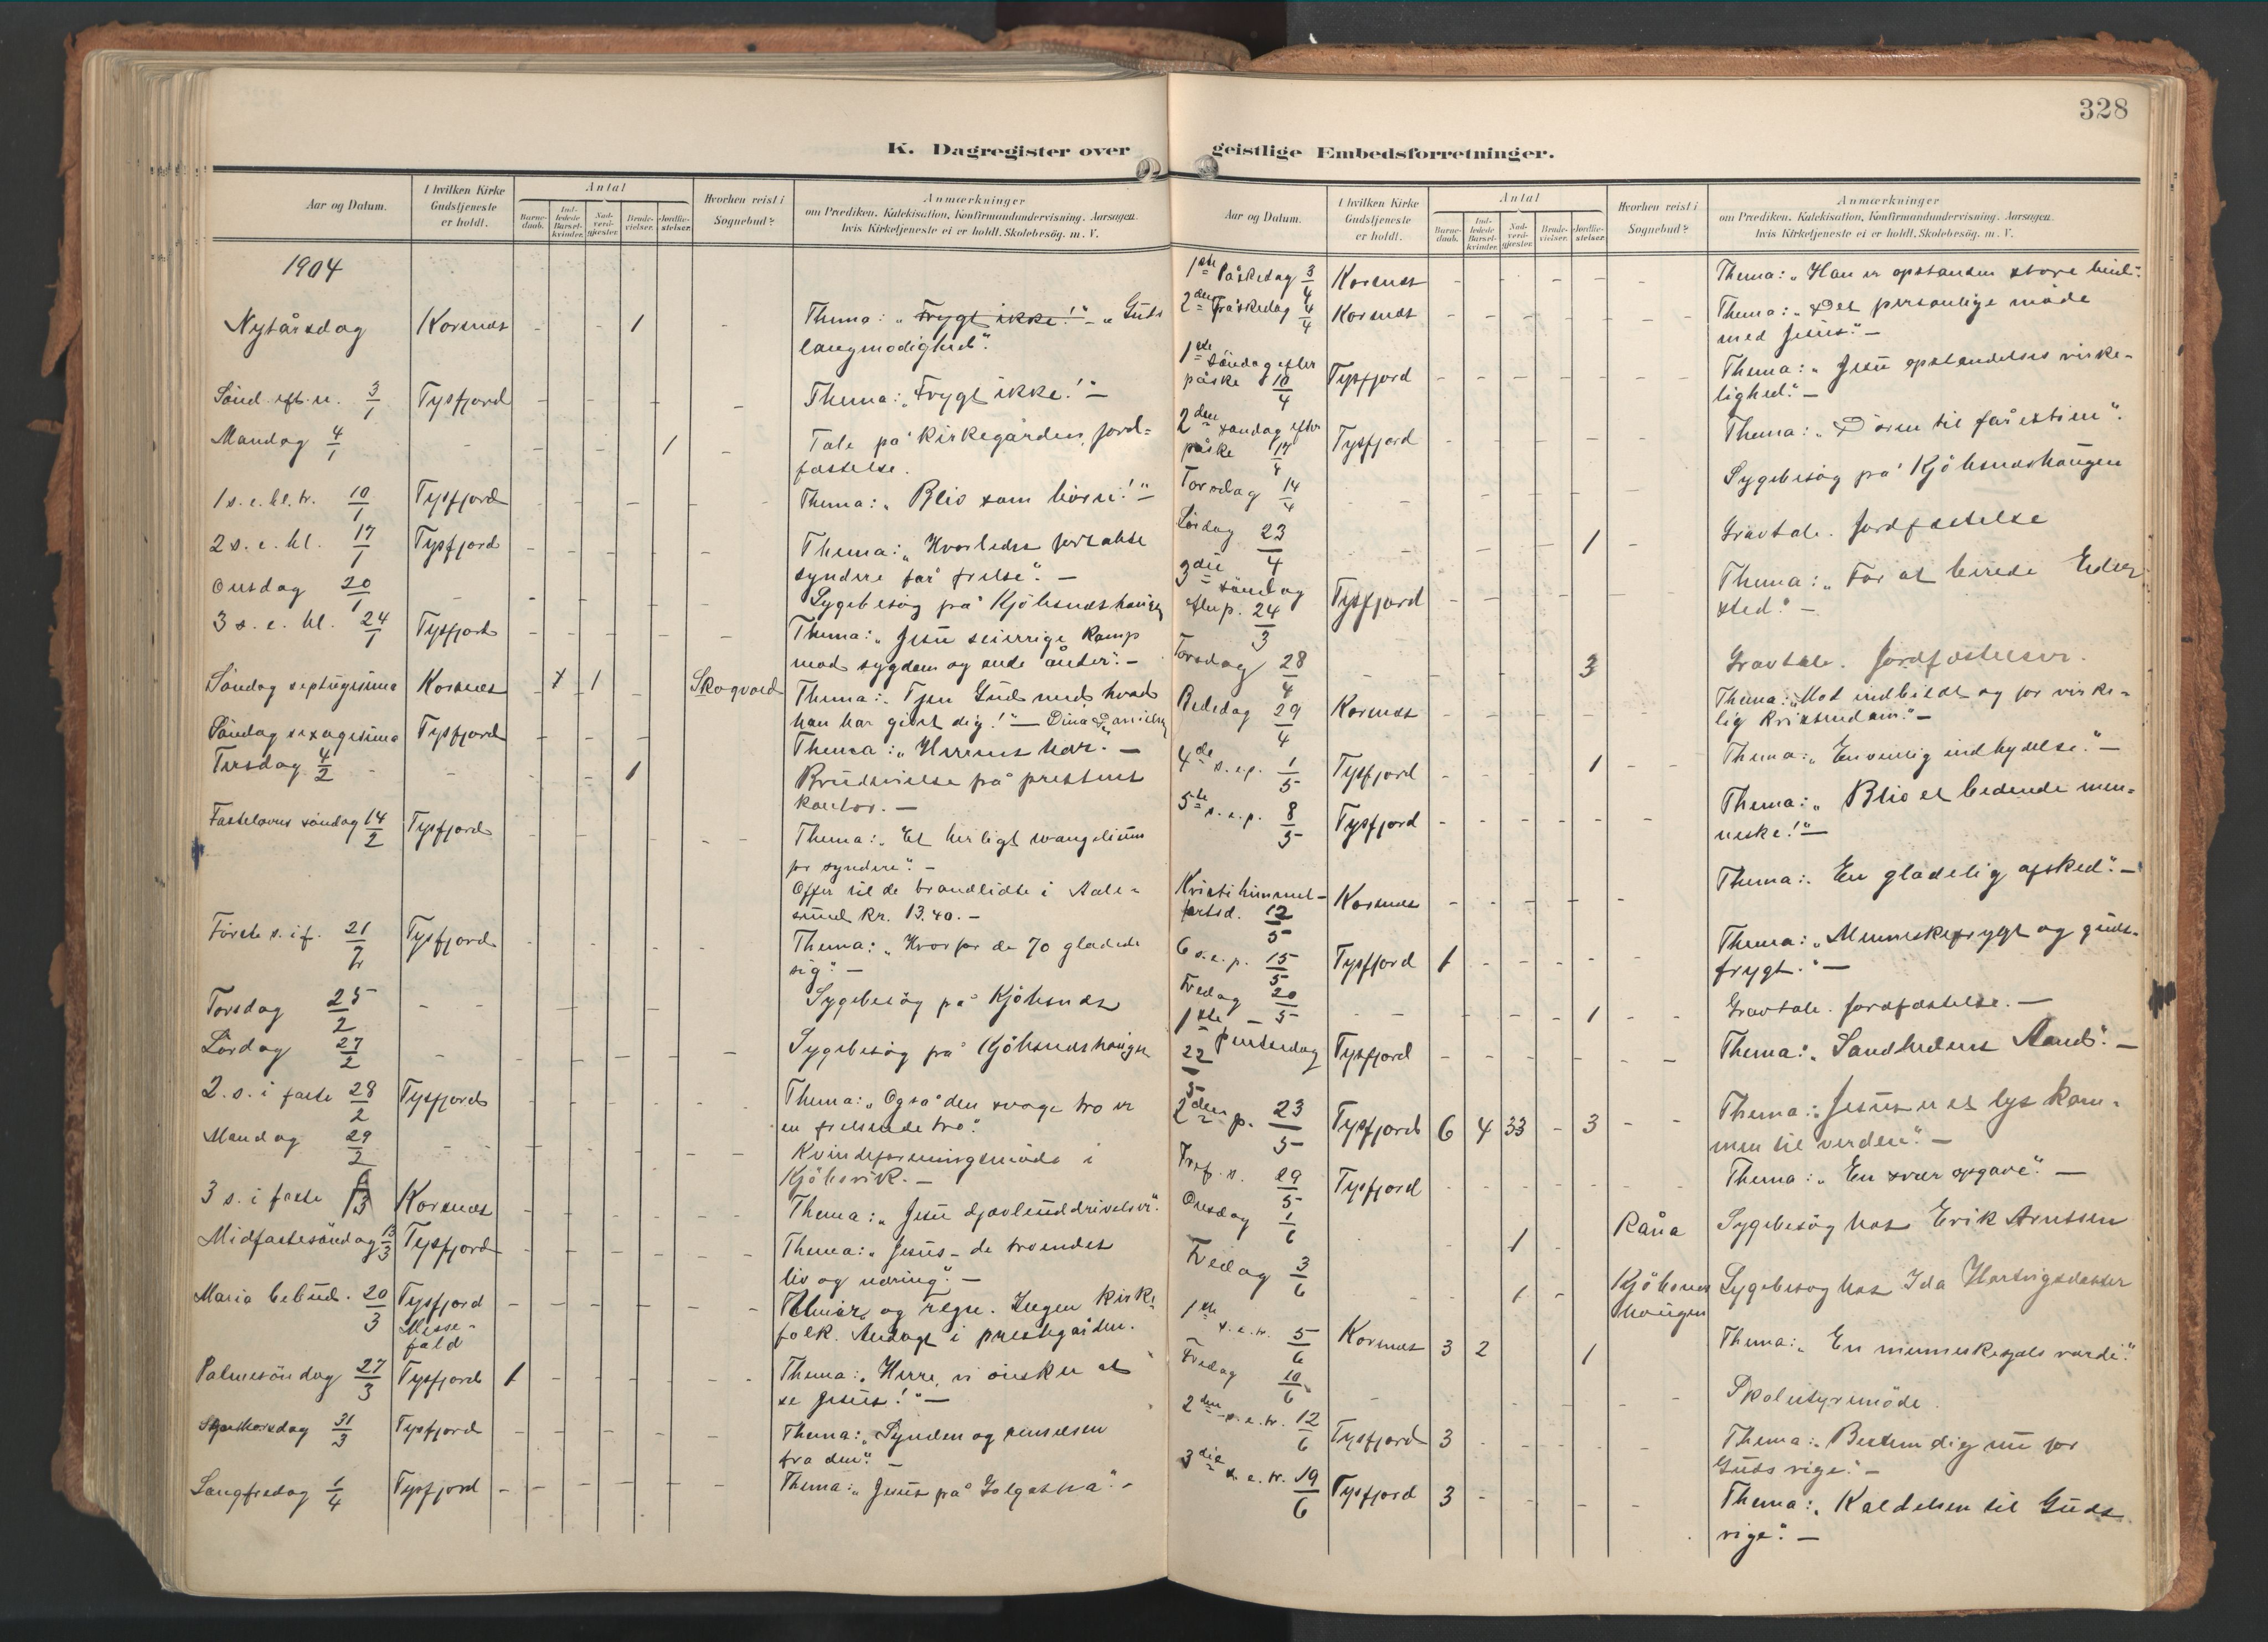 328
K. Dagregister over geistlige Embedsforretninger.
Aar og Datum.
I hvilken Kirke Gudstjeneste er holdt.
Antal
Barnedaab.
Indledede Barselkvinder.
Nadverdgjester.
Brudevielser.
Jordfæstelser.
Hvorhen reist i Sognebud?
Anmærkninger
om Prædiken, Katekisation, Konfirmandundervisning, Aarsagen,
hvis Kirketjeneste ei er holdt, Skolebesög, m. V.
1904
Nytårsdag Korsnæs - - - 1 - Thema: „Frygt ikke!" - „Guds
langmodighed".
Sönd. eft. n. 3/1 Tysfjord - - - - - Thema: „Frygt ikke!" -
Mandag 4/1 - - - - 1 - Tale på kirkegården, jord-
fæstelse.
1 s. e. hl. tr. 10/1 Tysfjord - - - - - Thema: „Bliv som börn!" -
2 s. e. hl. 17/1 Tysfjord - - - - - Thema: „Hvorledes fortabte
syndere får frelse". -
Onsdag 20/1 - - - - - Sygebesög på Kjöbsnæshaugen
3 s. e. hl. 24/1 Tysfjord - - - - - Thema: „Jesu seierrige kamp
mod sygdom og onde ånder". -
Söndag septuagesima Korsnæs - 1 1 Skogvold Thema: „Tjen Gud med hvad
han har givet dig!" -
Söndag sexagesima Tysfjord - - - - Thema: „Herrens har". -
Tirsdag 4/2 - - - 1 Brudevielse på prestens
kontor. -
Fastelavns söndag 14/2 Tysfjord - - - - - Thema: „Et herligt evangelium
for syndere". -
Offer til de brandlidte i Aale-
sund Kr. 13.40. -
Förste s. i f. 21/2 Tysfjord - - - - - Thema: „Hvorfor de 70 glædede
sig". -
Torsdag 25/2 - - - - - Sygebesög på Kjöbsnæs
Lördag 27/2 - - - - - Sygebesög på Kjöbsnæshaugen
2. s. i faste 28/2 Tysfjord - - - - - Thema: „Også den svage tro er
en frelsende tro".
Mandag 29/2 - - - - - Kvindeforeningsmöde i
Kjöbsvik. -
3 s. i faste 6/3 Korsnæs - - - - - Thema: „Jesu djævleuddrivelser".
Midfastesöndag 13/3 Tysfjord - - - - - Thema: „Jesus - de troendes
liv og næring". -
Maria bebud. 20/3 Tysfjord - - - - - og regn. Ingen kirke-
Messe- folk. Andagt i prestegården.
fald
Palmesöndag 27/3 Tysfjord 1 - - - - Thema: „Herre, vi önsker at
se Jesus!" -
Skjærtorsdag 31/3 Tysfjord - - - - - Thema: „Synden og renselsen
fra den". -
Langfredag 1/4 Tysfjord - - - - - Thema: „Jesus på Golgatha". -
Aar og Datum.
I hvilken Kirke Gudstjeneste er holdt.
Antal
Barnedaab.
Indledede Barselkvinder.
Nadverdgjester.
Brudevielser.
Jordfæstelser.
Hvorhen reist i Sognebud?
Anmærkninger
om Prædiken, Katekisation, Konfirmandundervisning, Aarsagen,
hvis Kirketjeneste ei er holdt, Skolebesög, m. V.
1ste Påskedag 3/4 Korsnæs - - - - - Thema: „Han er opstanden
2den Påskedag 4/4 Korsnæs - - - - - Thema: „Det personlige möde
med Jesus". -
1ste söndag efter
påske 10/4 Tysfjord - - - - - Thema: „Jesu opstandelses virke-
lighed". -
2den söndag eftr
påske 17/4 Tysfjord - - - - - Thema: „Dören til fårestien".
Torsdag 14/4 - - - - - Sygebesög på Kjöbsnæshaugen
Lördag 23/4 - - - - 1 - Gravtale. Jordfæstelse
3die söndag
eftr p. 24/3 Tysfjord - - - - - Thema: „For at berede Eder
sted". -
Torsdag 28/4 - - - - 3 Gravtale. Jordfæstelser.
Bededag 29/4 Korsnæs - - - - - Thema: „Mod indbildt og for virke-
lig kristendom". -
4de s. e. p. 1/5 Tysfjord - - - - 1 - Thema: „En venlig indbydelse". -
5te s. e. p. 8/5 Tysfjord - - - - - Thema: „Bliv et bedende men-
neske!" -
Kristi himmel-
fartsd. 12/5 Korsnæs - - - - - Thema: „En glædelig afsked". -
6 s. e. p. 15/5 Tysfjord 1 - - - - Thema: „Menneskefrygt og guds-
frygt." -
Fredag 20/5 - - - - 1 - Gravtale. Jordfæstelse. -
1ste pintsedag
22/5 Tysfjord - - - - - Thema: „Sandhedens Aand". -
2den p. 23/5 Tysfjord 6 4 33 - 3 - Thema: „Jesus er et lys kom-
men til verden". -
Tref. s. 29/5 Tysfjord - - - - - Thema: „En svær opgave". -
Onsdag 1/6 - - 1 - Råna Sygebesög hos Erik Arntsen
Fredag 3/6 - - 1 - Kjöbsnes Sygebesög hos Ida Hartvigsdatter
haugen
1ste s. e. tr. 5/6 Korsnæs 3 2 1 Thema: „En menneskesjæls værdi".
Fredag 10/6 - - - Skolestyremöde.
2den s. e. tr. 12/6 Tysfjord 3 - - - - Thema: „Bestem dig nu for
Guds rige". -
3die s. e. tr. 19/6 Tysfjord 3 - - - - Thema: „Kaldelsen til Guds
rige". -